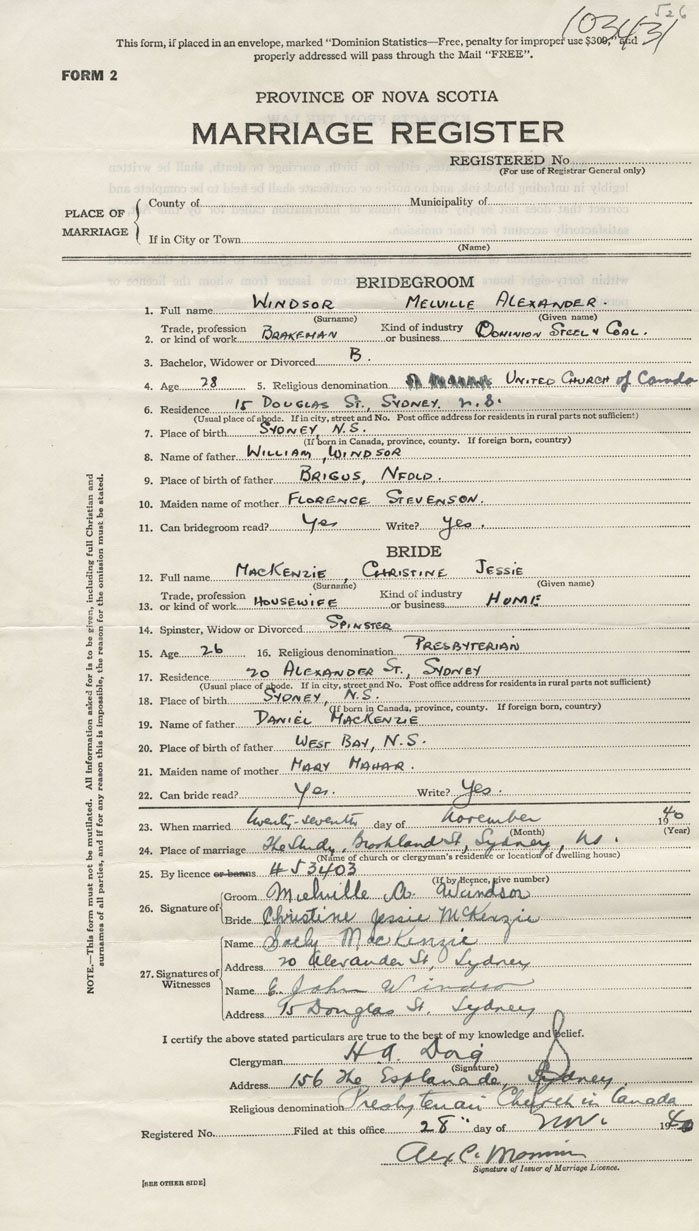 526
103431
This form, if placed in an envelope, marked "Dominion Statistics—Free, penalty for improper use $300," and
properly addressed will pass through the Mail "FREE".
FORM 2
PROVINCE OF NOVA SCOTIA
MARRIAGE REGISTER
REGISTERED No
(For use of Registrar General only)
PLACE OF MARRIAGE
County of Municipality of
If in City or Town
(Name)
BRIDEGROOM
1. Full name WINDSOR MELVILLE ALEXANDER.
(Surname) (Given name)
2. Trade, profession or kind of work BRAKEMAN Kind of industry or business DOMINION STEEL & COAL.
3. Bachelor, Widower or Divorced B.
4. Age 28 5. Religious denomination UNITED CHURCH of Canada
6. Residence 15 DOUGLAS ST., SYDNEY, N.S.
(Usual place of abode. If in city, street and No. Post office address for residents in rural parts not sufficient)
7. Place of birth SYDNEY, N.S.
(If born in Canada, province, county. If foreign born, country)
8. Name of father WILLIAM WINDSOR
9. Place of birth of father BRIGUS, NFDLD.
10. Maiden name of mother FLORENCE STEVENSON.
11. Can bridegroom read? Yes Write? Yes.
BRIDE
12. Full name MACKENZIE, CHRISTINE JESSIE
(Surname) (Given name)
13. Trade, profession or kind of work HOUSEWIFE Kind of industry or business HOME
14. Spinster, Widow or Divorced SPINSTER
15. Age 26 16. Religious denomination PRESBYTERIAN
17. Residence 20 ALEXANDER ST., SYDNEY
(Usual place of abode. If in city, street and No. Post office address for residents in rural parts not sufficient)
18. Place of birth SYDNEY, N.S.
(If born in Canada, province, county. If foreign born, country)
19. Name of father DANIEL MACKENZIE
20. Place of birth of father WEST BAY, N.S.
21. Maiden name of mother MARY MAHAR.
22. Can bride read? Yes. Write? Yes.
23. When married twenty-seventh day of November 1940
(Month) (Year)
24. Place of marriage The Study, Brookland St, Sydney, NS.
(Name of church or clergyman's residence or location of dwelling house)
25. By licence or banns # 53403
(If by licence, give number)
26. Signature of
Groom Melville A. Windsor
Bride Christine Jessie McKenzie
27. Signatures of Witnesses
Name MacKenzie
Address 20 Alexander St, Sydney
Name E. John Windsor
Address 15 Douglas St. Sydney
I certify the above stated particulars are true to the best of my knowledge and belief.
Clergyman H. A. Doig
(Signature)
Address 156 The Esplanade, Sydney
Religious denomination Presbyterian Church in Canada
Registered No. Filed at this office 28" day of Nov. 1940
Alex C.
Signature of Issuer of Marriage Licence.
[SEE OTHER SIDE]
NOTE.—This form must not be mutilated. All information asked for is to be given, including full Christian and
surnames of all parties, and if for any reason this is impossible, the reason for the omission must be stated.